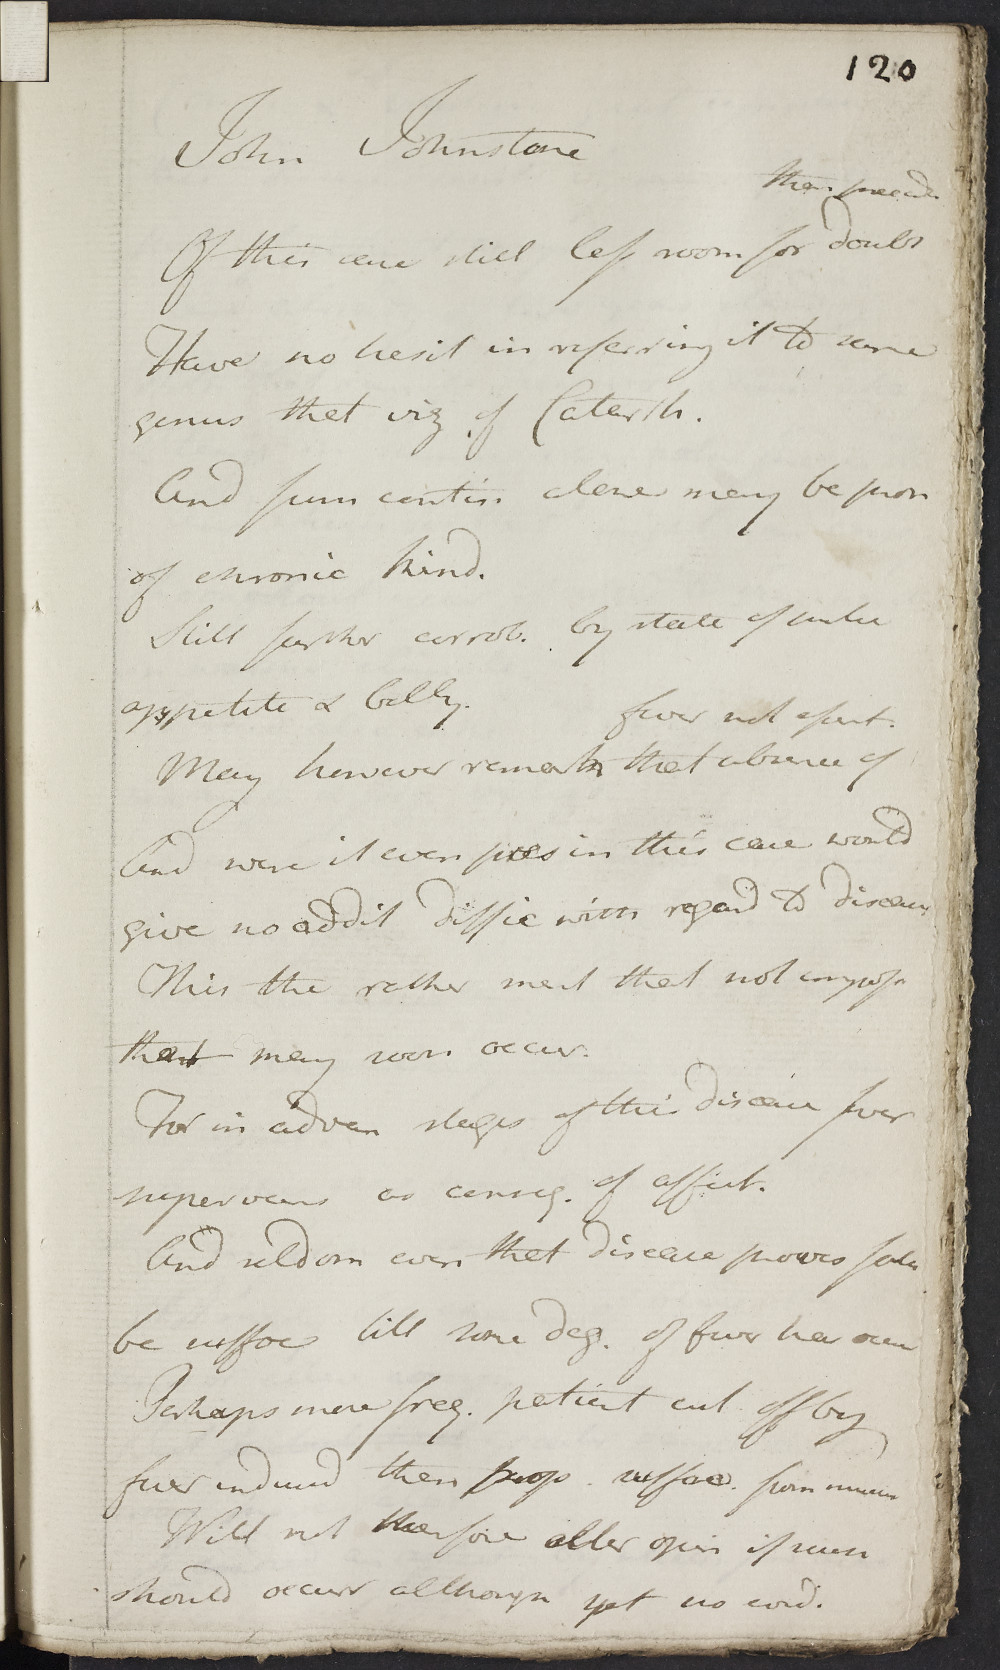 120
John Johnstone
than preced.
Of this case still less room for doubt
Have no hesit in referring it to same
genus that viz of Catarrh.
And from contin alone may be pron
of chronic kind.
Still farther corrob. by state of pulse
appetite & belly.
fever not essent.
May however remark that absence of
And were it even pres in this case would
give no addit diffic with regard to disease
This the rather ment that not imposs
that may soon occur.
For in advan stages of this disease fever
supervenes as conseq. of affect.
And seldom even that disease proves fatal
be suffoc till some deg. of fever has occur
Perhaps more freq. patient cut off by
fever induced then suffoc. from mucus
Will not therefore alter opin if such
should occur although yet no evid.